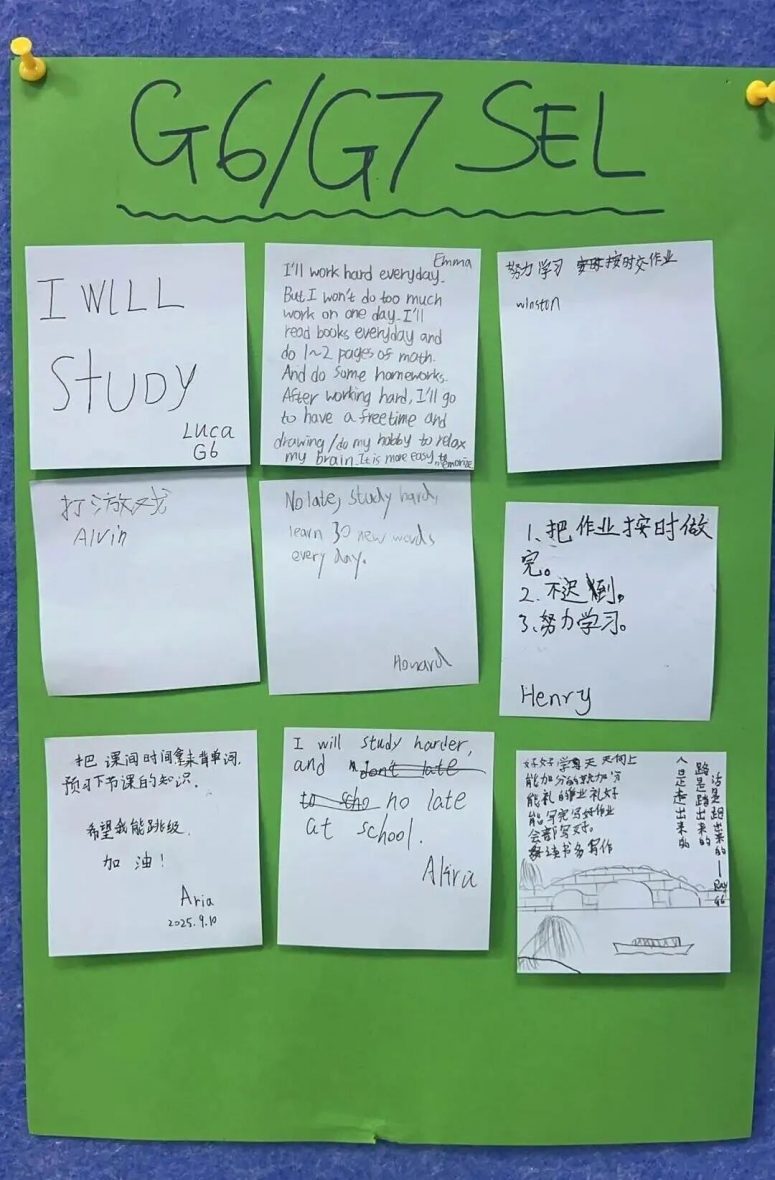 G6/G7 SEL
I WILL
STUDY
Luca
G6
Emma
I'll work hard everyday.
But I won't do too much
work on one day. I'll
read books everyday and
do 1~2 pages of math.
And do some homeworks.
After working hard, I'll go
to have a freetime and
drawing/do my hobby to relax
my brain. It is more easy to memorize
努力学习 按时交作业
winston
打游戏
Alvin
No late, study hard,
learn 30 new words
every day.
Howard
1、把作业按时做
完。
2、不迟到。
3、努力学习。
Henry
把课间时间拿来背单词,
预习下节课的知识.
希望我能跳级.
加油!
Aria
2025.9.10
I will study harder,
and don't late
to scho no late
at school.
Akira
好好学习天天向上
能加分的就加分
能写完写好作业
读书多写作
路是踏出来的
人是走出来的
Ray
G6